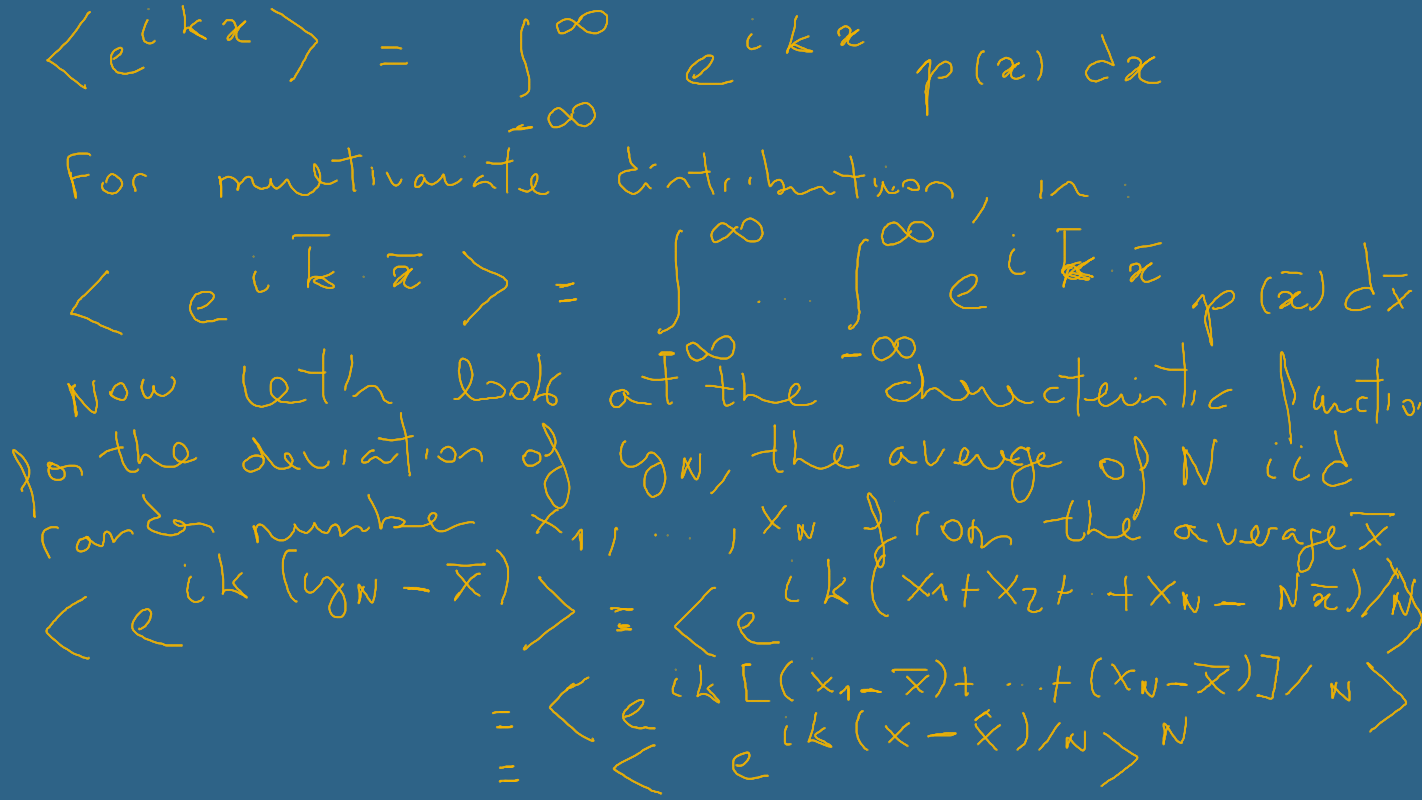 ⟨e^{ikx}⟩ = ∫_{-∞}^{∞} e^{ikx} p(x) dx
For multivariate distribution, in
⟨e^{i k̄·x̄}⟩ = ∫_{-∞}^{∞} ... ∫_{-∞}^{∞} e^{i k̄·x̄} p(x̄) dx̄
Now lets look at the characteristic functio
for the deviation of y_N, the average of N iid
random number x_1, ..., x_N from the average x̄
⟨e^{ik(y_N - x̄)}⟩ = ⟨e^{ik(x_1+x_2+..+x_N - Nx̄)/N}⟩
= ⟨e^{ik[(x_1-x̄)+...+(x_N-x̄)]/N}⟩
= ⟨e^{ik(x-x̄)/N}⟩^N